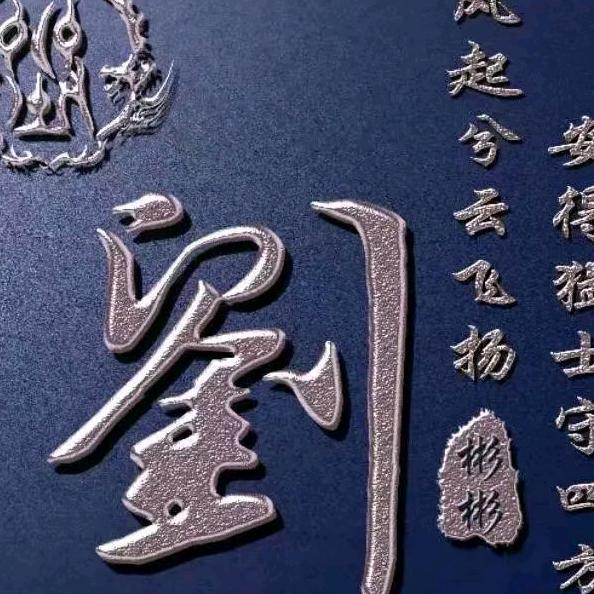 安得猛士守四方
风起兮云飞扬
劉
彬彬